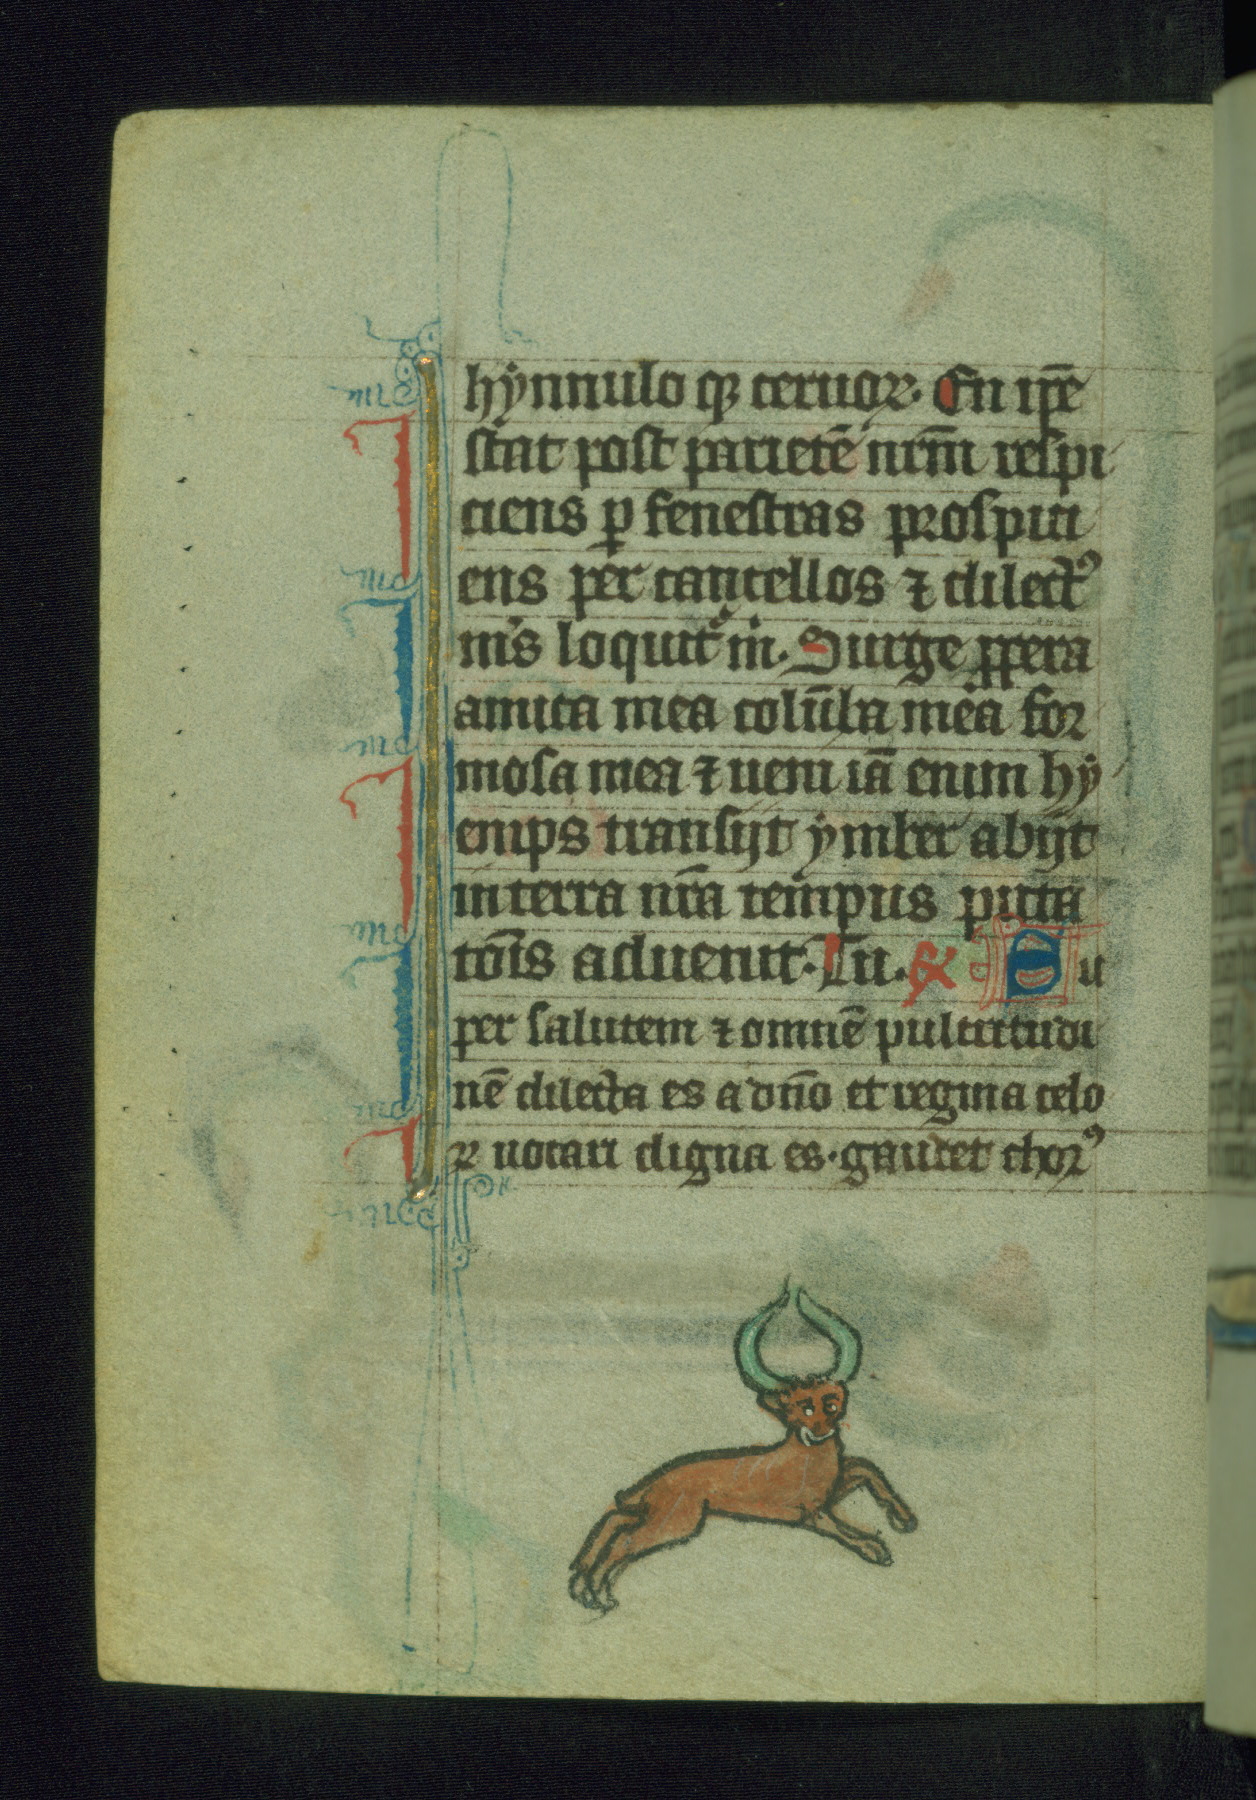 hẏnnulo qꝫ ceruoꝝ. En ip̄e
stat post parietē nr̄m respi
ciens ꝑ fenestras prospici
ens per cancellos ⁊ dilectꝰ
m̓s loquit᷑ m̓. Surge ꝓpera
amica mea colūba mea for
mosa mea ⁊ ueni iā enim hẏ
emps transijt ẏmber abijt
in terra nr̄a tempus puta
tōis aduenit. Tu. ℟ Su
per salutem ⁊ omnē pulcritudi
nē dilecta es a dn̄o et regina celo
ꝝ uocari digna es. gaudet chorꝰ